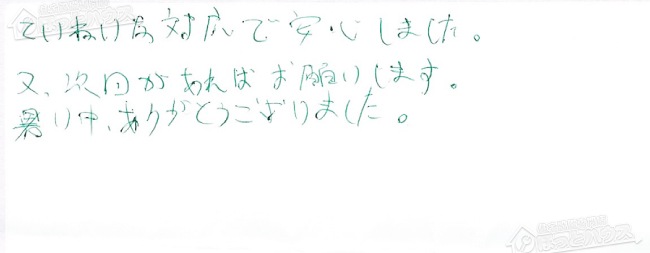 ていねいな対応で安心しました。
又、次回があればお願いします。
暑い中、ありがとうございました。